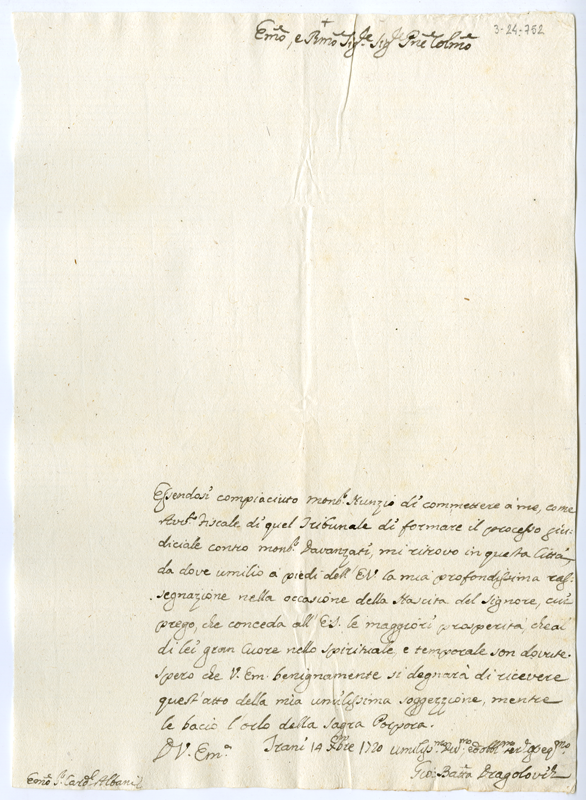 3-24-752
Emo, e Rmo Sigre Sigre Pne Colmo
Essendosi compiaciuto Monsr Nunzio di commettere à me, come
Avvto Fiscale di quel Tribunale di formare il processo giu-
diciale contro Monsr Davanzati, mi ritrovo in questa Città,
da dove umilio a piedi dell'EV. la mia profondissima ras-
segnazione nella occasione della Nascita del Signore, cui
prego, che conceda all'ES. le maggiori prosperità, che al
di lei gran Cuore nello spirituale, e temporale son dovute.
Spero che V. Em. benignamente si degnarà di ricevere
quest'atto della mia umilissima soggezzione, mentre
le bacio l'orlo della Sagra Porpora.
D V. Ema
Trani 14 Xbre 1720
umilismo Divmo
Gio: Batta Dragolovich
Emo Sr Cardl Albani